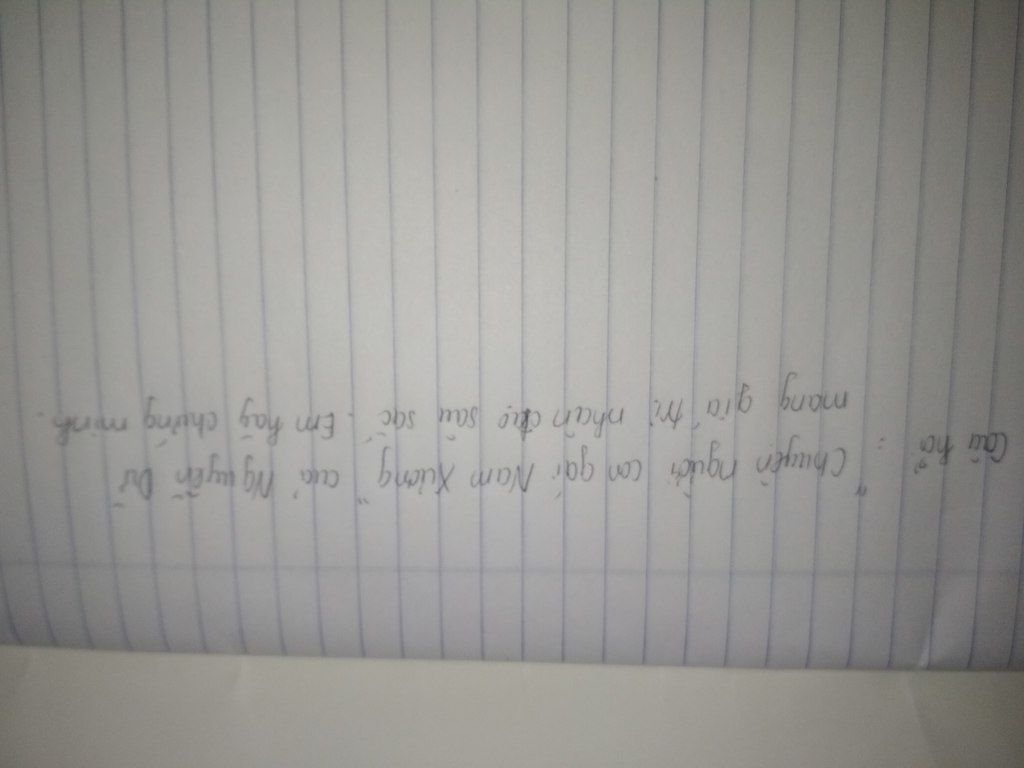 Câu hỏi :
"Chuyện người con gái Nam Xương" của Nguyễn Dữ
mang giá trị nhân đạo sâu sắc. Em hãy chứng minh.